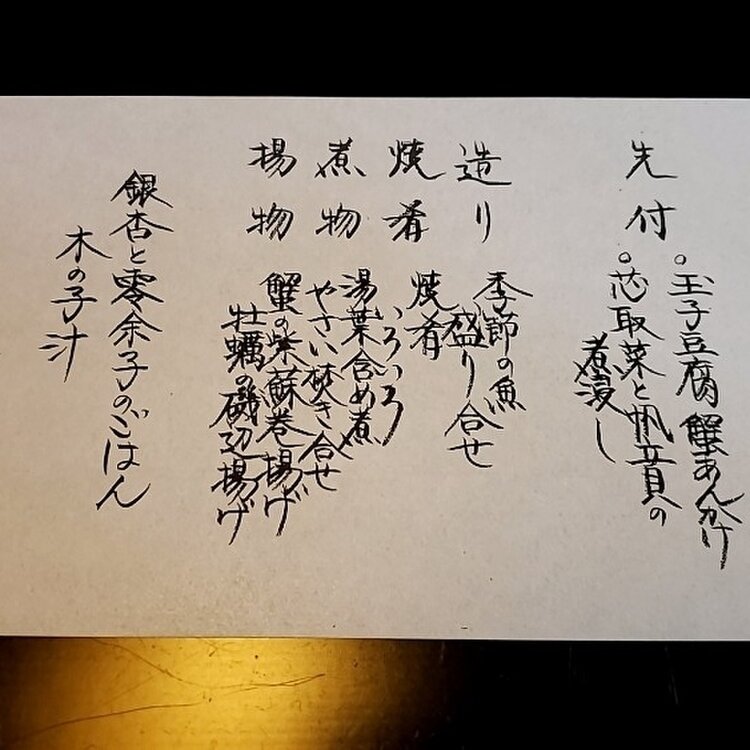 先付
。玉子豆腐 蟹あんかけ
。芯取菜と帆立貝の
煮浸し
造り
季節の魚
盛り合せ
焼肴
焼肴
いろいろ
煮物
湯葉含め煮
やさい焚き合せ
揚物
蟹の紫蘇巻揚げ
牡蠣の磯辺揚げ
銀杏と零余子のごはん
木の子汁